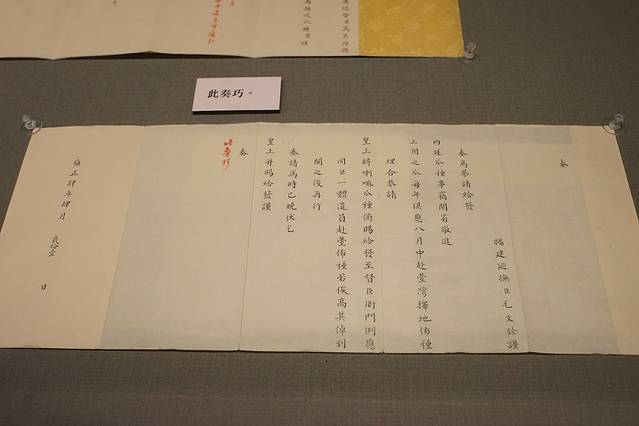 此奏巧。
奏
福建巡撫臣毛文銓謹
奏為恭請給發
內廷瓜種事竊閩省敬進
上用之瓜每年俱應八月中赴臺灣擇地佈種
理合恭請
皇上將喇嘛瓜種俯賜給發至督臣衙門例應
同臣一體遣員赴臺佈種若俟高其倬到
閩之後再行
奏請為時已晚伏乞
皇上并賜給發謹
奏
此奏巧
雍正肆年肆月 貳拾壹 日